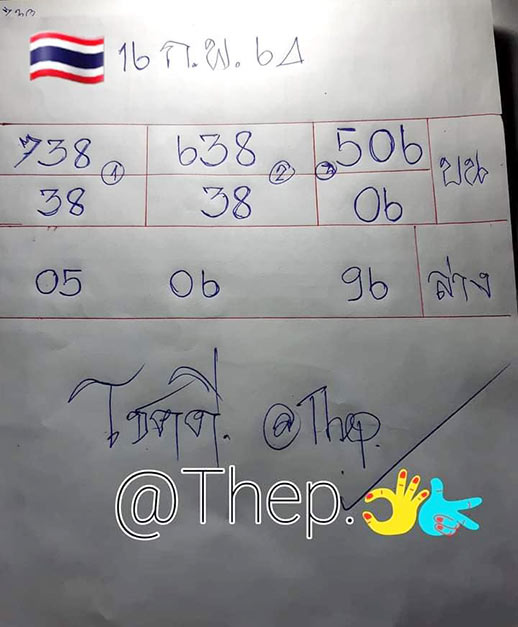 16 ก.พ. 64
738 ① 638 ② ③ 506 บน
38 38 06
05 06 96 ล่าง
โชคดี. @Thep.
@Thep.